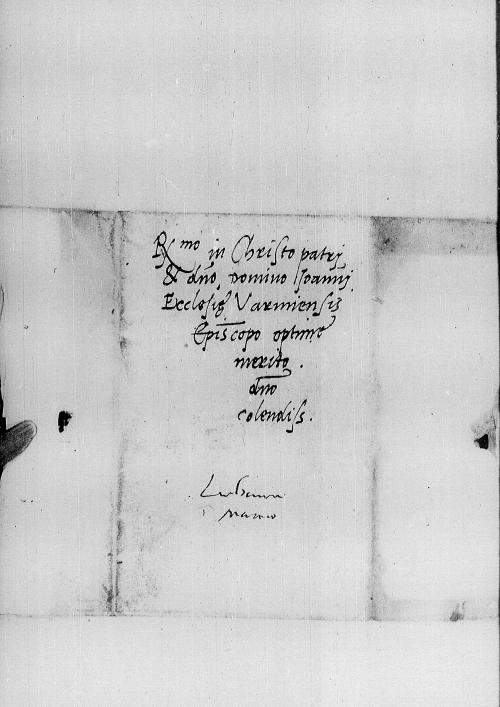 R mo in Christo patri
& dño domino Joanni
Ecclesię Varmiensis
Epīscopo optime
merito.
dño
colendiss.